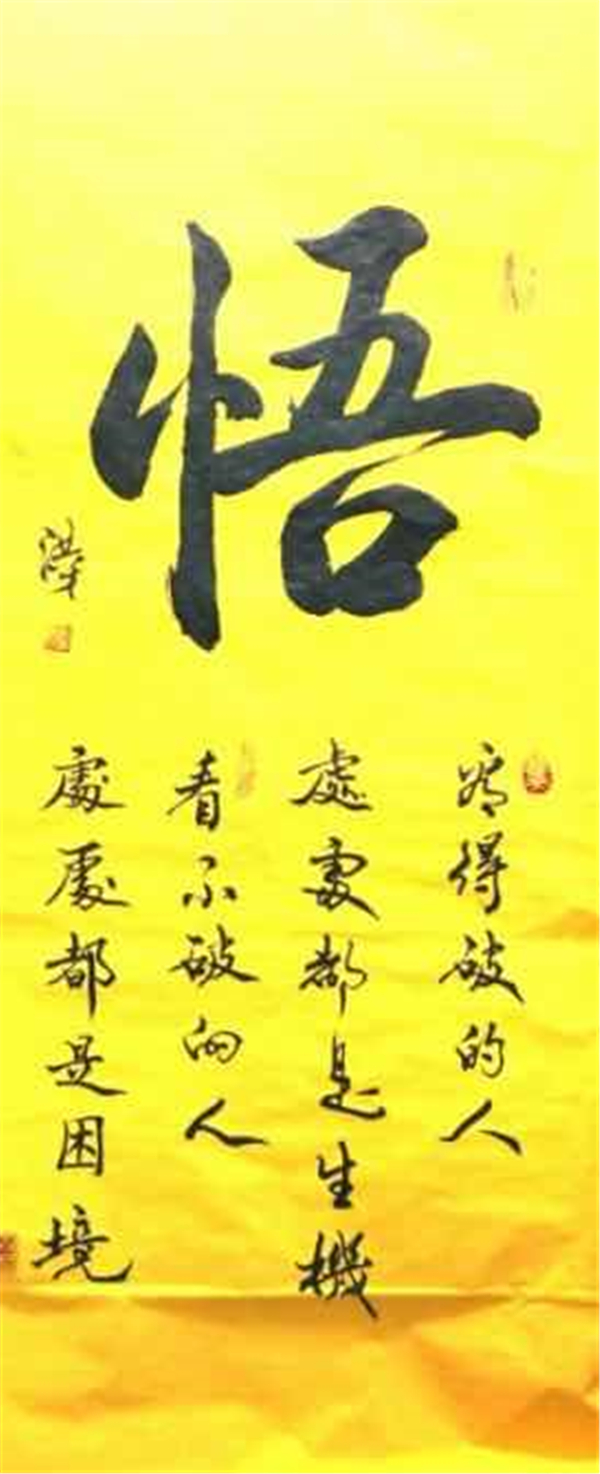 悟
看得破的人
處處都是生機
看不破的人
處處都是困境